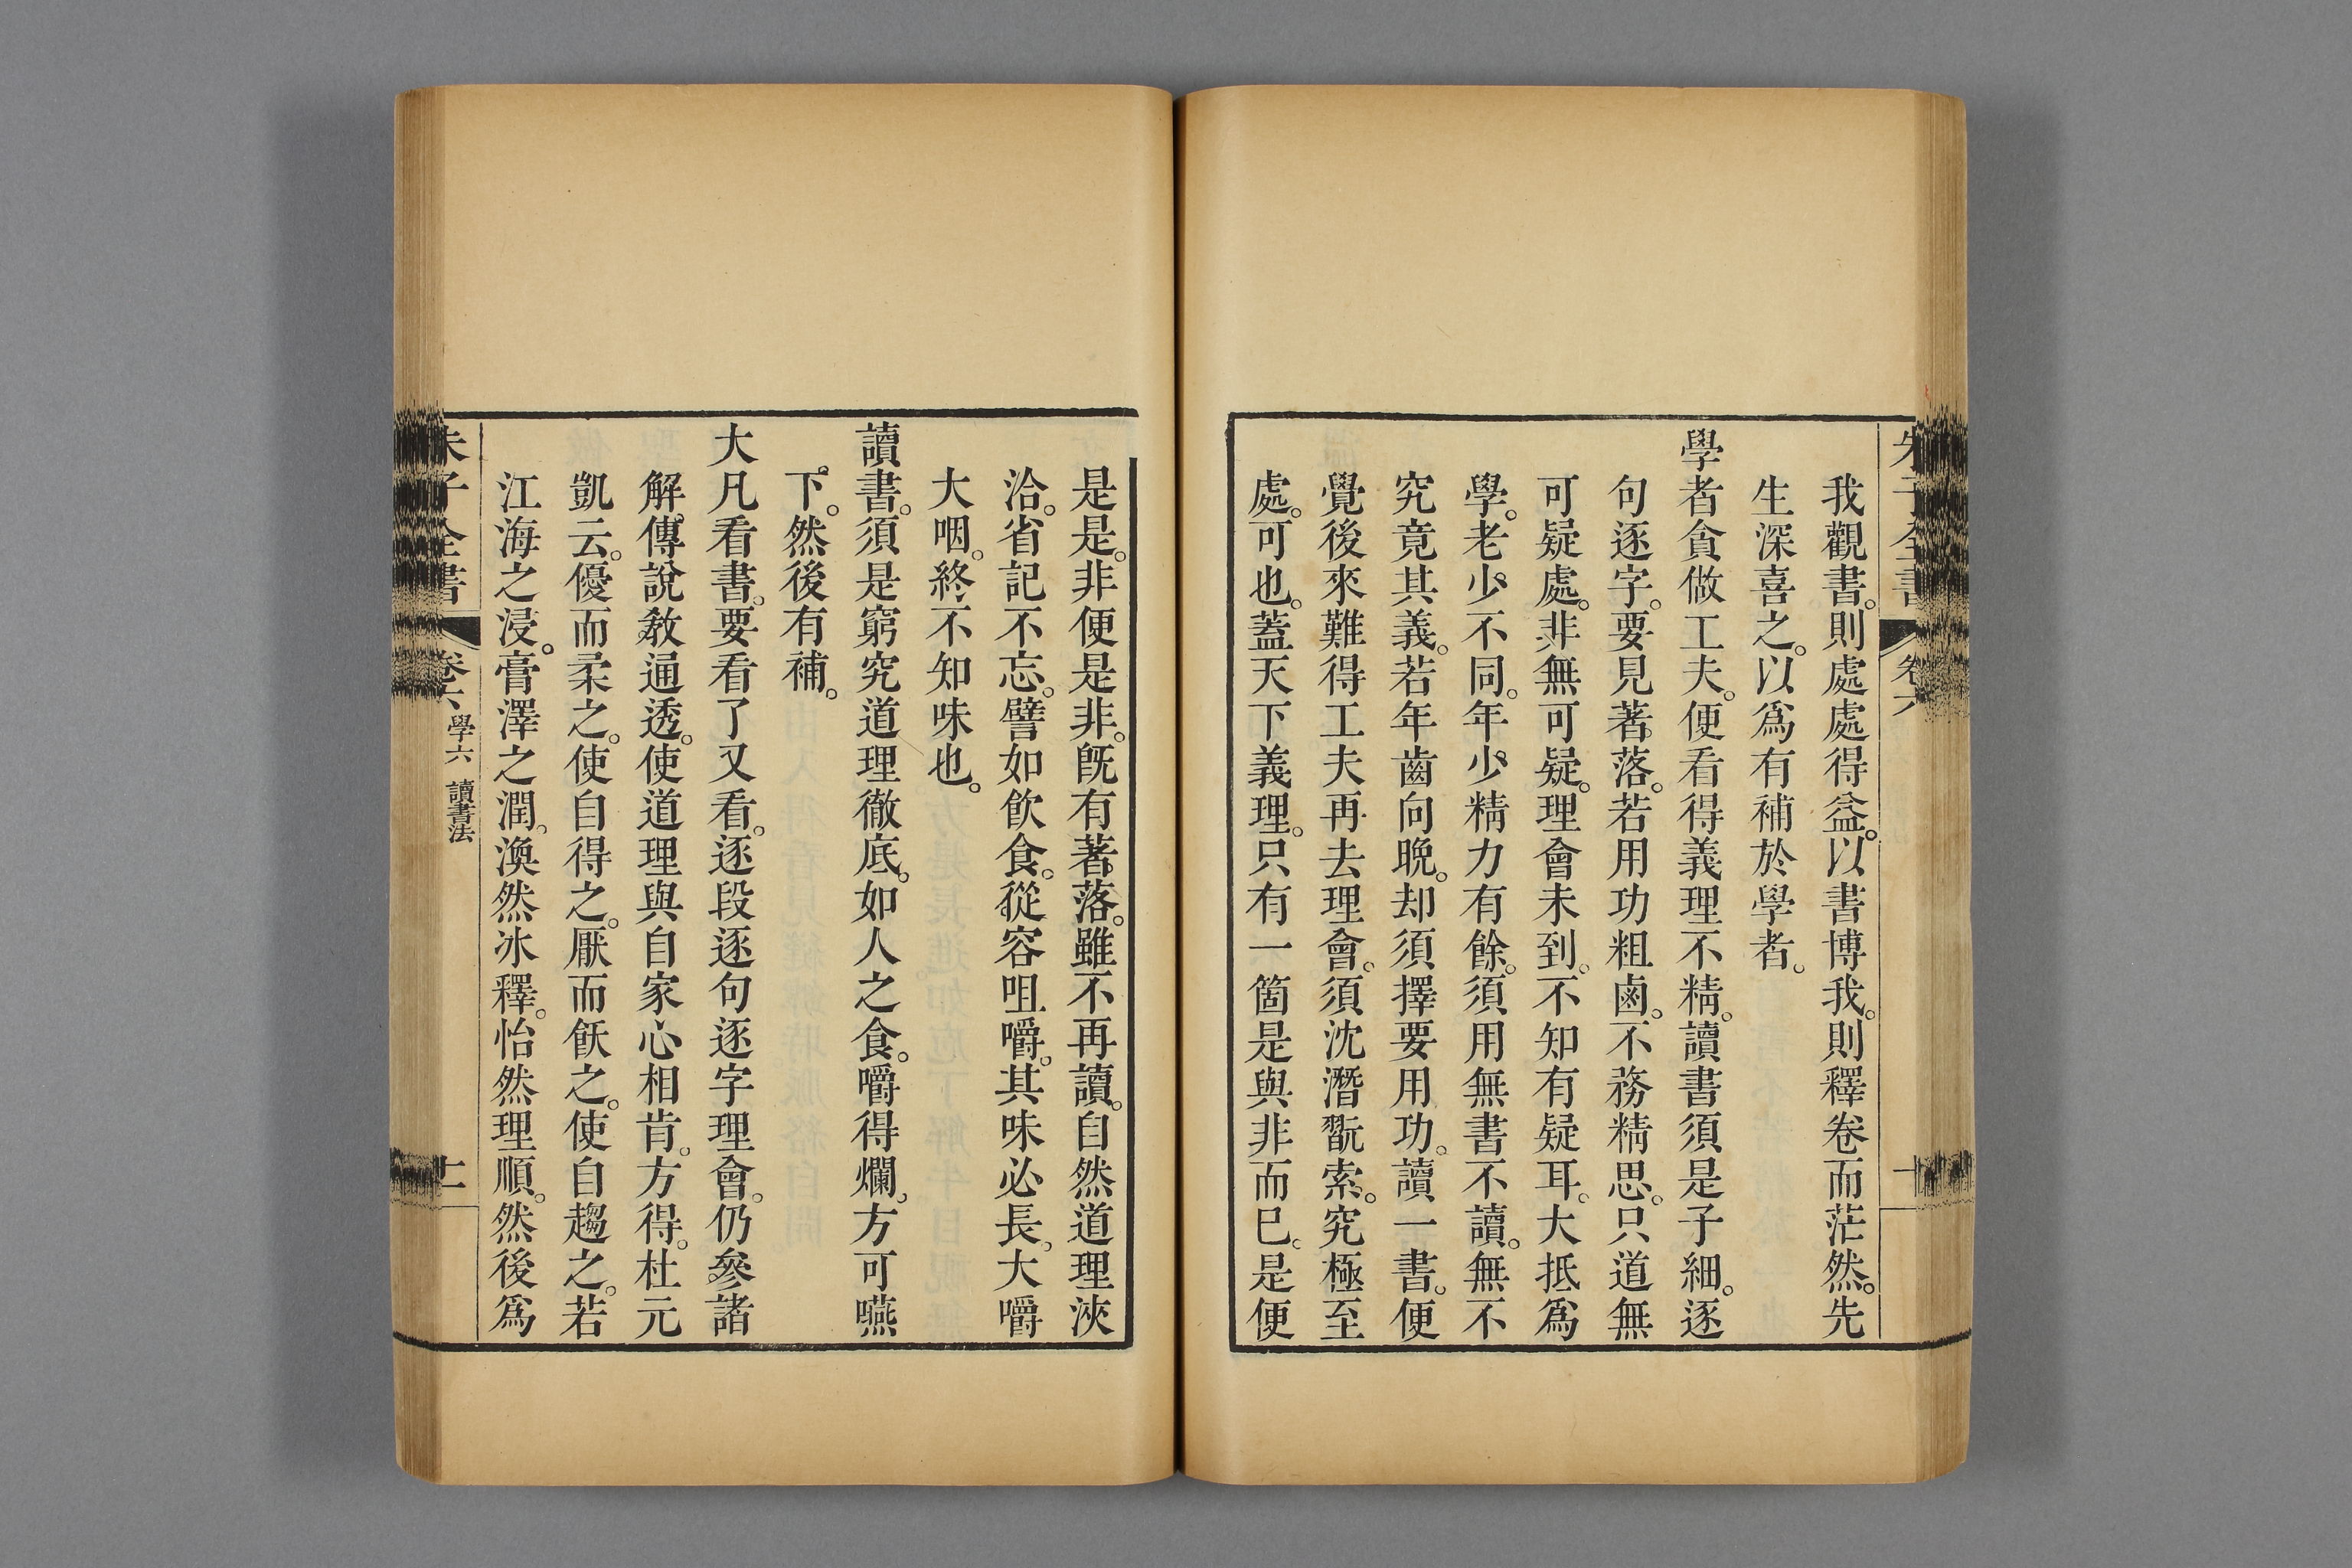 朱子全書 卷六
我觀書。則處處得益。以書博我。則釋卷而茫然。先
生深喜之。以爲有補於學者。
學者貪做工夫。便看得義理不精。讀書須是子細。逐
句逐字。要見著落。若用功粗鹵。不務精思。只道無
可疑處。非無可疑。理會未到。不知有疑耳。大抵爲
學。老少不同。年少精力有餘。須用無書不讀。無不
究竟其義。若年齒向晚。却須擇要用功。讀一書。便
覺後來難得工夫再去理會。須沈潛翫索。究極至
處。可也。蓋天下義理。只有一箇是與非而已。是便
是是。非便是非。旣有著落。雖不再讀。自然道理浹
洽。省記不忘。譬如飲食。從容咀嚼。其味必長。大嚼
大咽。終不知味也。
讀書。須是窮究道理徹底。如人之食。嚼得爛。方可嚥
下。然後有補。
大凡看書。要看了又看。逐段逐句逐字理會。仍參諸
解傳說敎通透。使道理與自家心相肯。方得。杜元
凱云。優而柔之。使自得之。厭而飫之。使自趨之。若
江海之浸。膏澤之潤。渙然冰釋。怡然理順。然後爲
朱子全書 卷六 學六 讀書法 十一